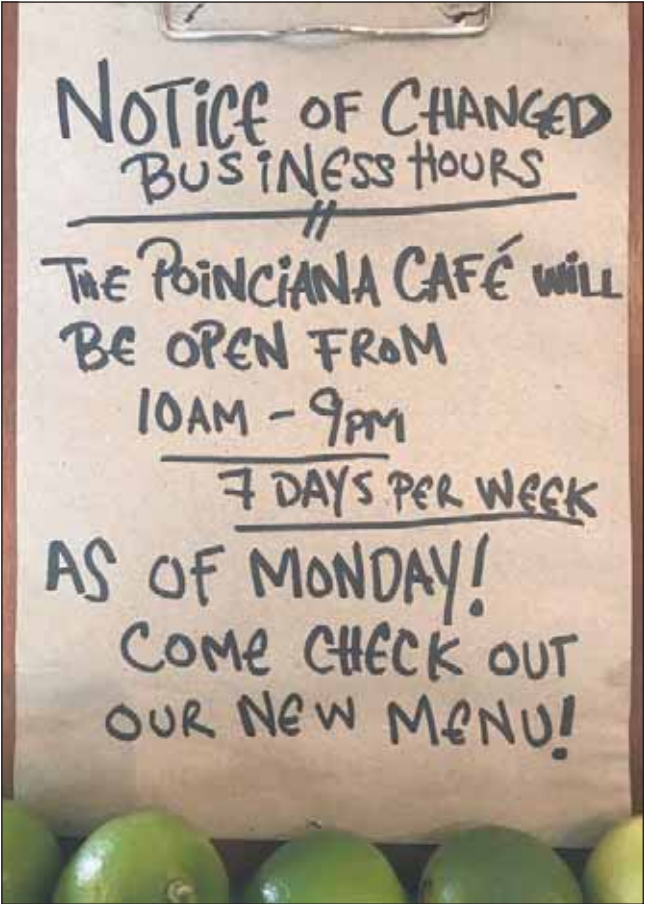 NOTICE OF CHANGED
BUSINESS HOURS
THE POINCIANA CAFÉ WILL
BE OPEN FROM
10AM - 9PM
7 DAYS PER WEEK
AS OF MONDAY!
COME CHECK OUT
OUR NEW MENU!